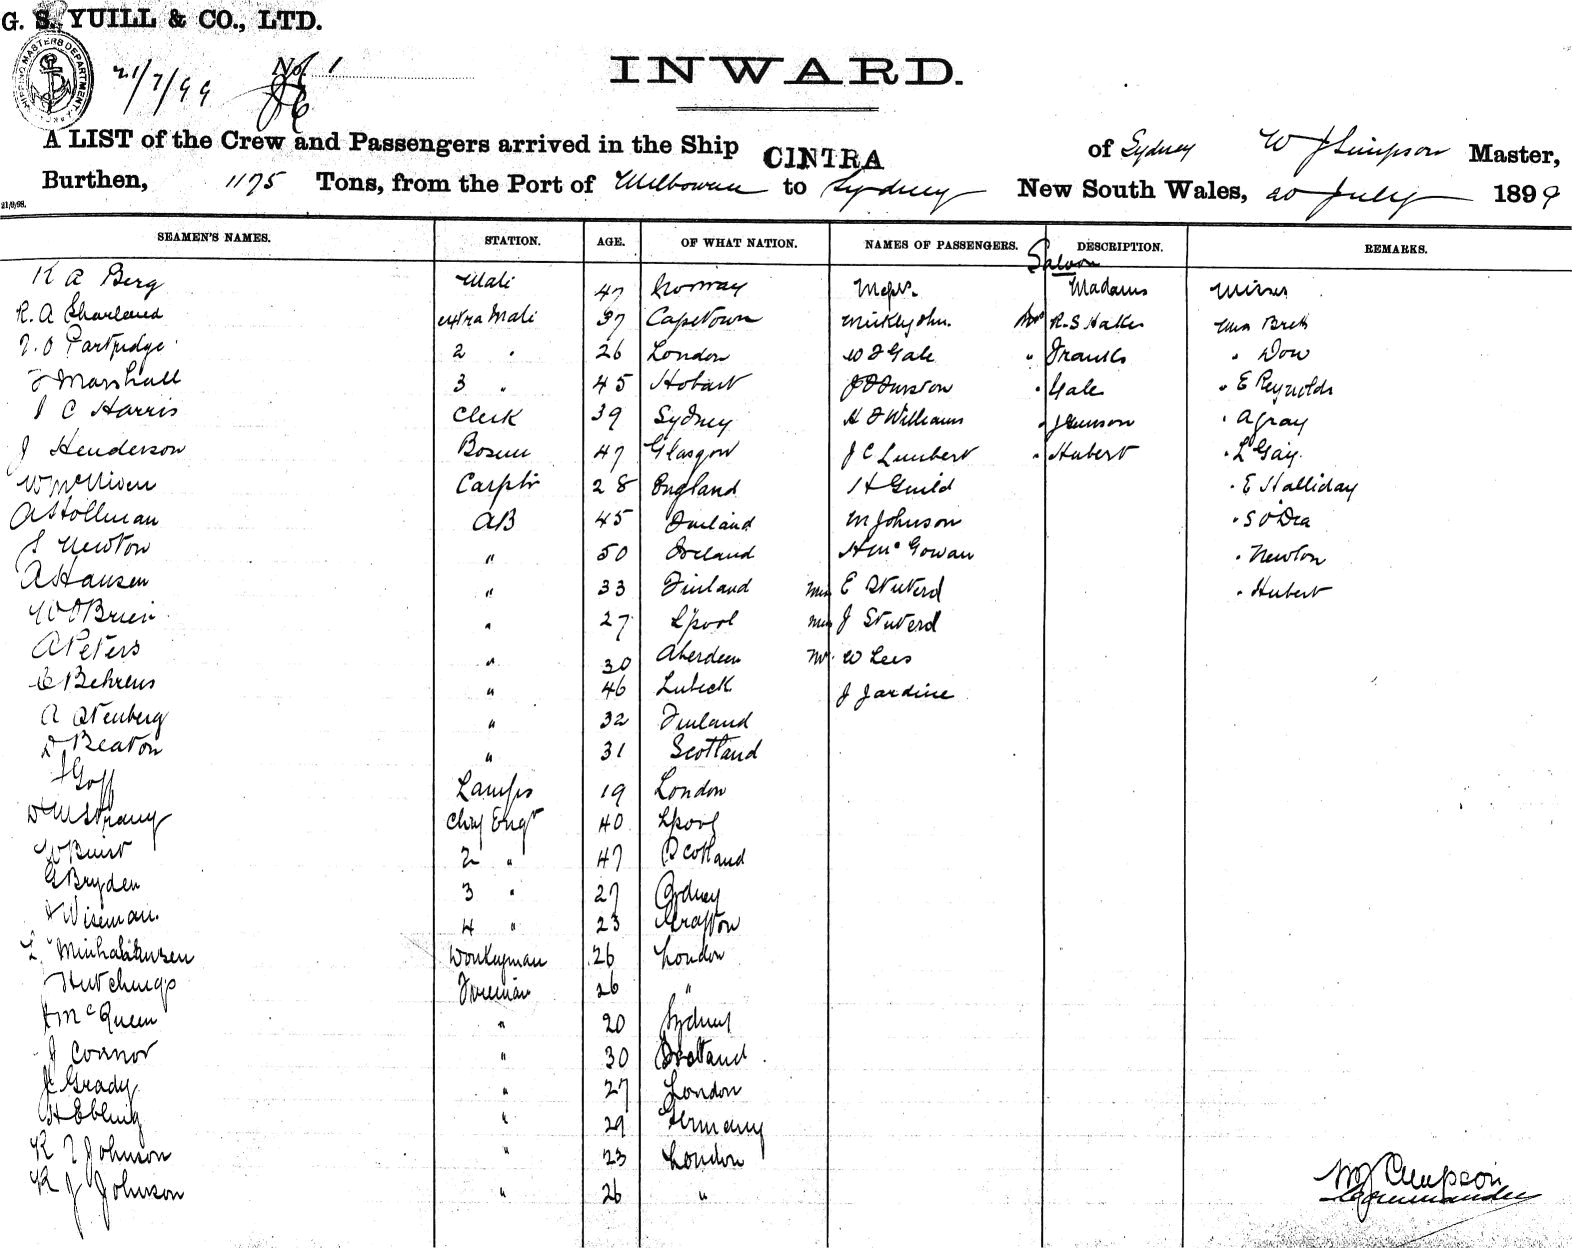 G. S. YUILL & CO., LTD.
SHIPPING MASTERS DEPARTMENT
21/7/99 No. 1
INWARD.
A LIST of the Crew and Passengers arrived in the Ship CINTRA of Sydney W J Simpson Master,
Burthen, 1175 Tons, from the Port of Melbourne to Sydney New South Wales, 20 July 1899
21/9/98.
SEAMEN'S NAMES. STATION. AGE. OF WHAT NATION. NAMES OF PASSENGERS. DESCRIPTION. REMARKS.
Saloon
K A Berg Mate 47 Norway Messrs. Madams Misses
R. A Sharland extra Mate 37 Capetown Micklejohn. Mrs R. S Halke Miss Brett
Partridge 2 " 26 London W J Gale " Franks " Dow
J Marshall 3 " 45 Hobart J D Durston " Gale " E Reynolds
J C Harris Clerk 39 Sydney H J Williams " " A Gray
J Henderson Bosun 47 Glasgow J C Lambert " Hubert " L Gay
W McNiven Carptr 28 England H Guild " E Halliday
A Hollman AB 45 Finland M Johnson " S O'Dea
S Newton " 50 Ireland H McGowan " Newton
A Hansen " 33 Finland Miss E Stuterd " Hubert
W O'Brien " 27 L'pool Miss J Stuterd
A Peters " 30 Aberdeen Mr W Lees
C Behrens " 46 Lubeck J Jardine
A Stenberg " 32 Finland
D Beaton " 31 Scotland
J Goff Lamps 19 London
Chief Engr 40 L'pool
W Buist 2 " 47 Scotland
G Bryden 3 " 27 Sydney
J Wiseman. 4 " 23 Grafton
L. Donkeyman 26 London
Hutchings Fireman 26 "
H McQueen " 20 Sydney
J Connor " 30 Scotland
J Grady " 27 London
H Ebling " 29 Germany
R T Johnson " 23 London
R J Johnson " 26 "
W J Simpson
Commander